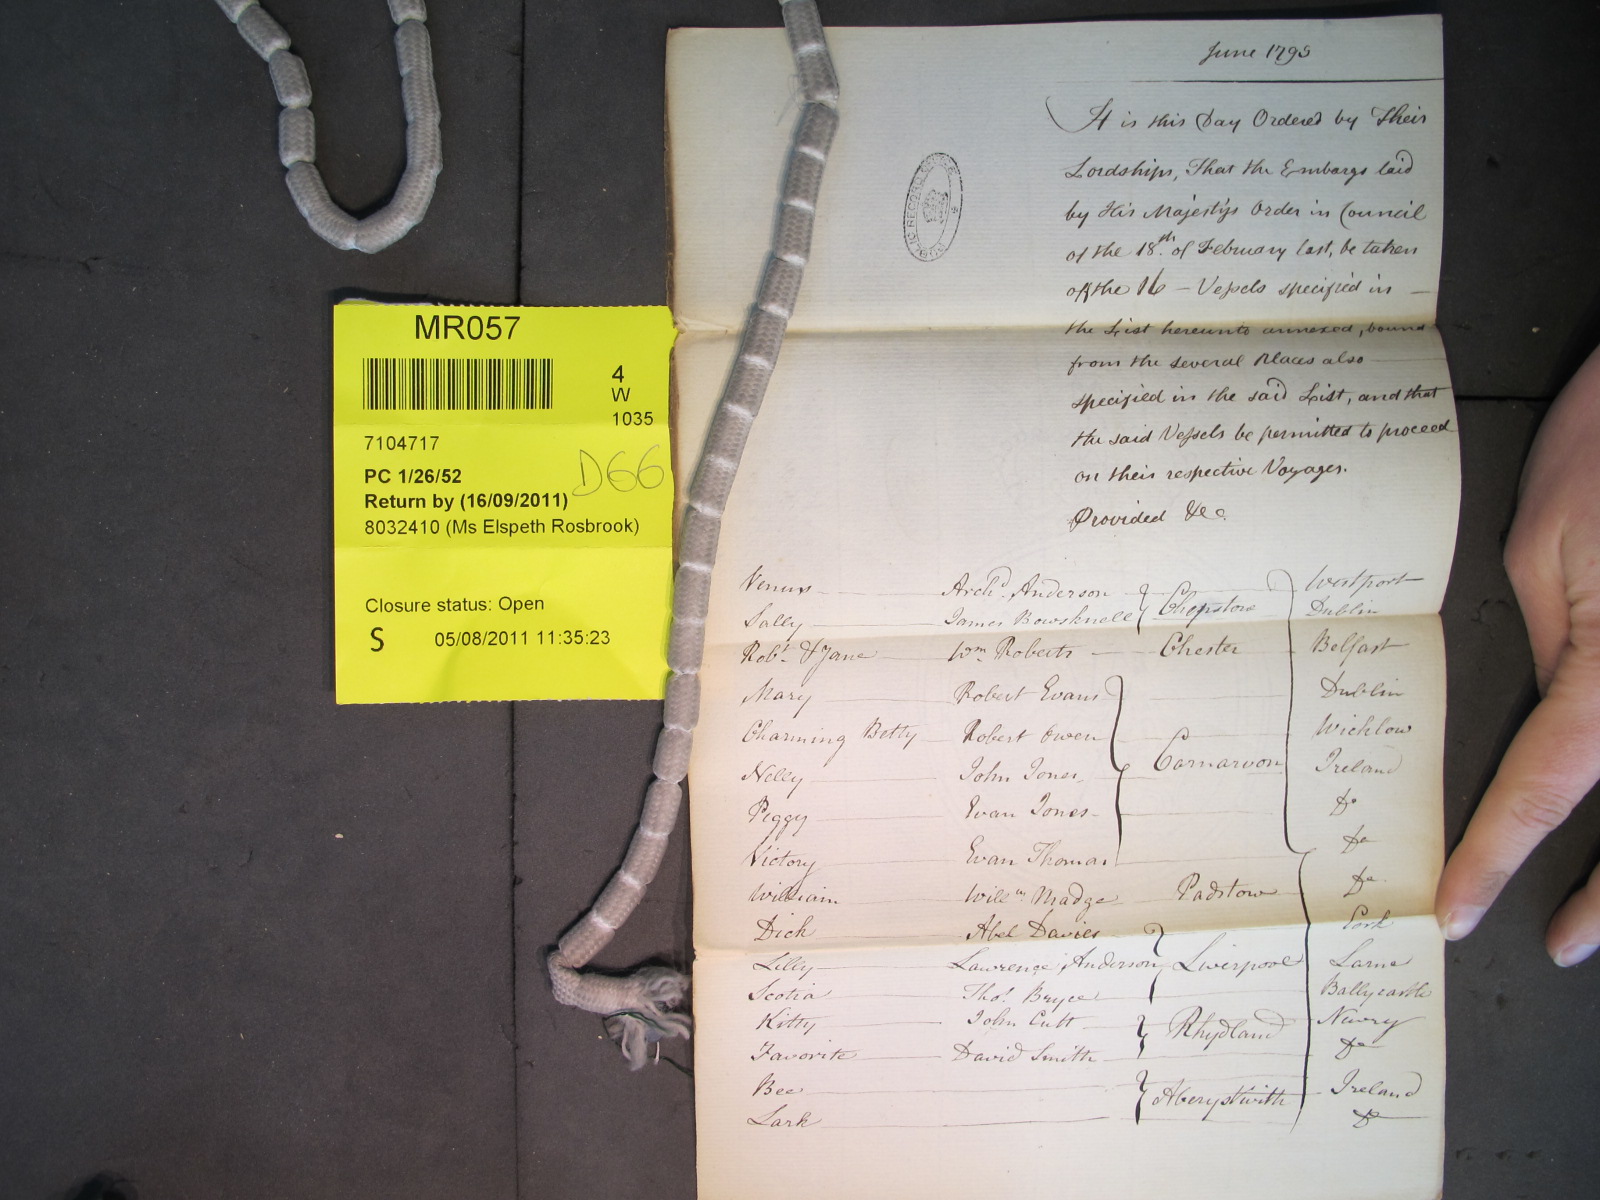 June 1795
It is this Day Ordered by Their
Lordships, That the Embargo laid
by His Majestys Order in Council
of the 18th. of February last, be taken
off the 16 - Vessels specified in -
the List hereunto annexed, bound
from the several Places also
specified in the said List, and that
the said Vessels be permitted to proceed
on their respective Voyages.
Provided &c.
PUBLIC RECORD OFFICE
MR057
4
W
1035
7104717
PC 1/26/52
D66
Return by (16/09/2011)
8032410 (Ms Elspeth Rosbrook)
Closure status: Open
S 05/08/2011 11:35:23
Venus Archd. Anderson Chepstow Westport
Sally James Dublin
Robt. & Jane Wm. Roberts Chester Belfast
Mary Robert Evans Dublin
Charming Betty Robert Owen Wicklow
Nelly John Jones Carnarvon Ireland
Peggy Evan Jones Do
Victory Evan Thomas Do
William Willm. Madge Padstow Do
Dick Abel Davies Cork
Lilly Lawrence Anderson Liverpool Larne
Scotia Thos. Bryce Ballycastle
Kitty John Cutt Rhydland Newry
Favorite David Smith Do
Bee Aberystwith Ireland
Lark Do